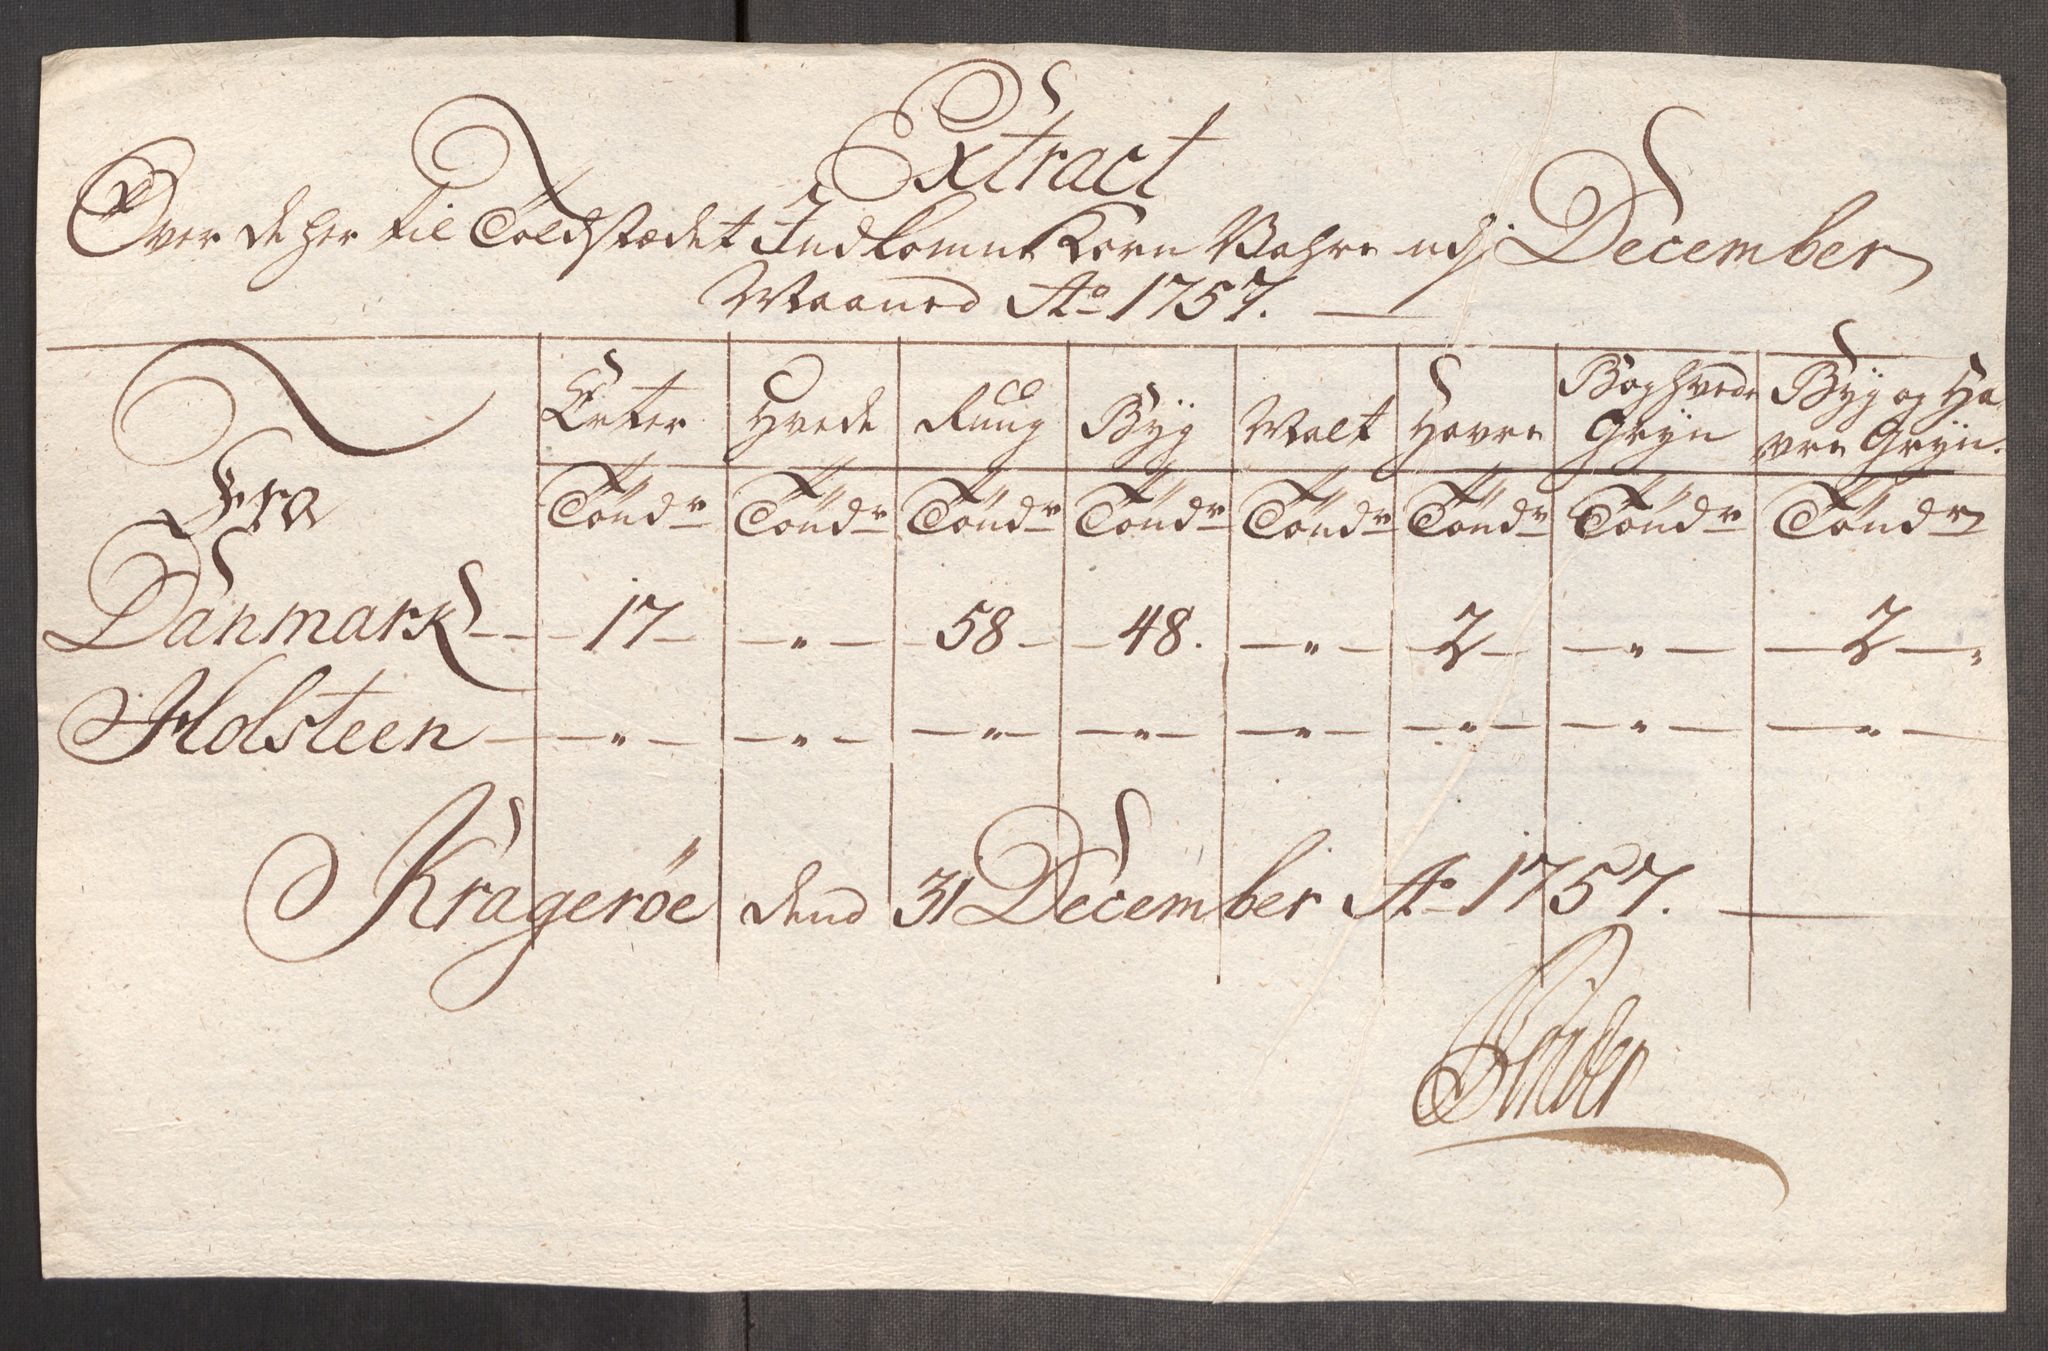 Extract
Over de her til Toldstædet Indkomne Korn Vahre udj December
Maaned Ao 1757.
Fra Erter Hvede Ruug Byg Malt Havre Boghvede Gryn Byg og Havre Gryn.
Tøndr Tøndr Tøndr Tøndr Tøndr Tøndr Tøndr Tøndr
Danmark - - 17 - - " - 58 - - 48. - " - 2 - - " - - 2 - "
Holsteen - - " - - " - - " - - " - - " - - " - - " - - " -
Kragerøe dend 31 December Ao 1757.